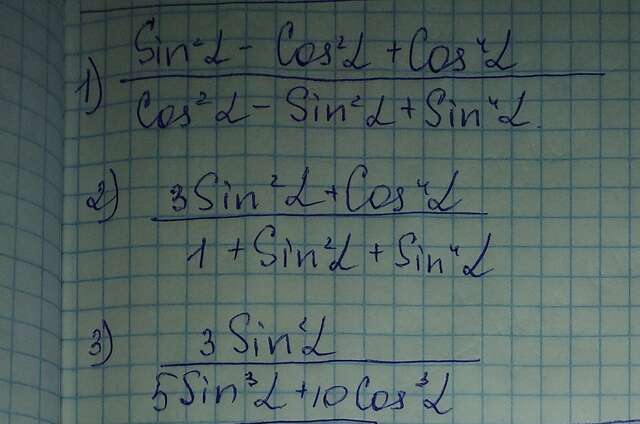 1) Sin²α - Cos²α + Cos⁴α
Cos²α - Sin²α + Sin⁴α
2) 3Sin²α + Cos⁴α
1 + Sin²α + Sin⁴α
3) 3 Sin²α
5Sin³α + 10Cos³α